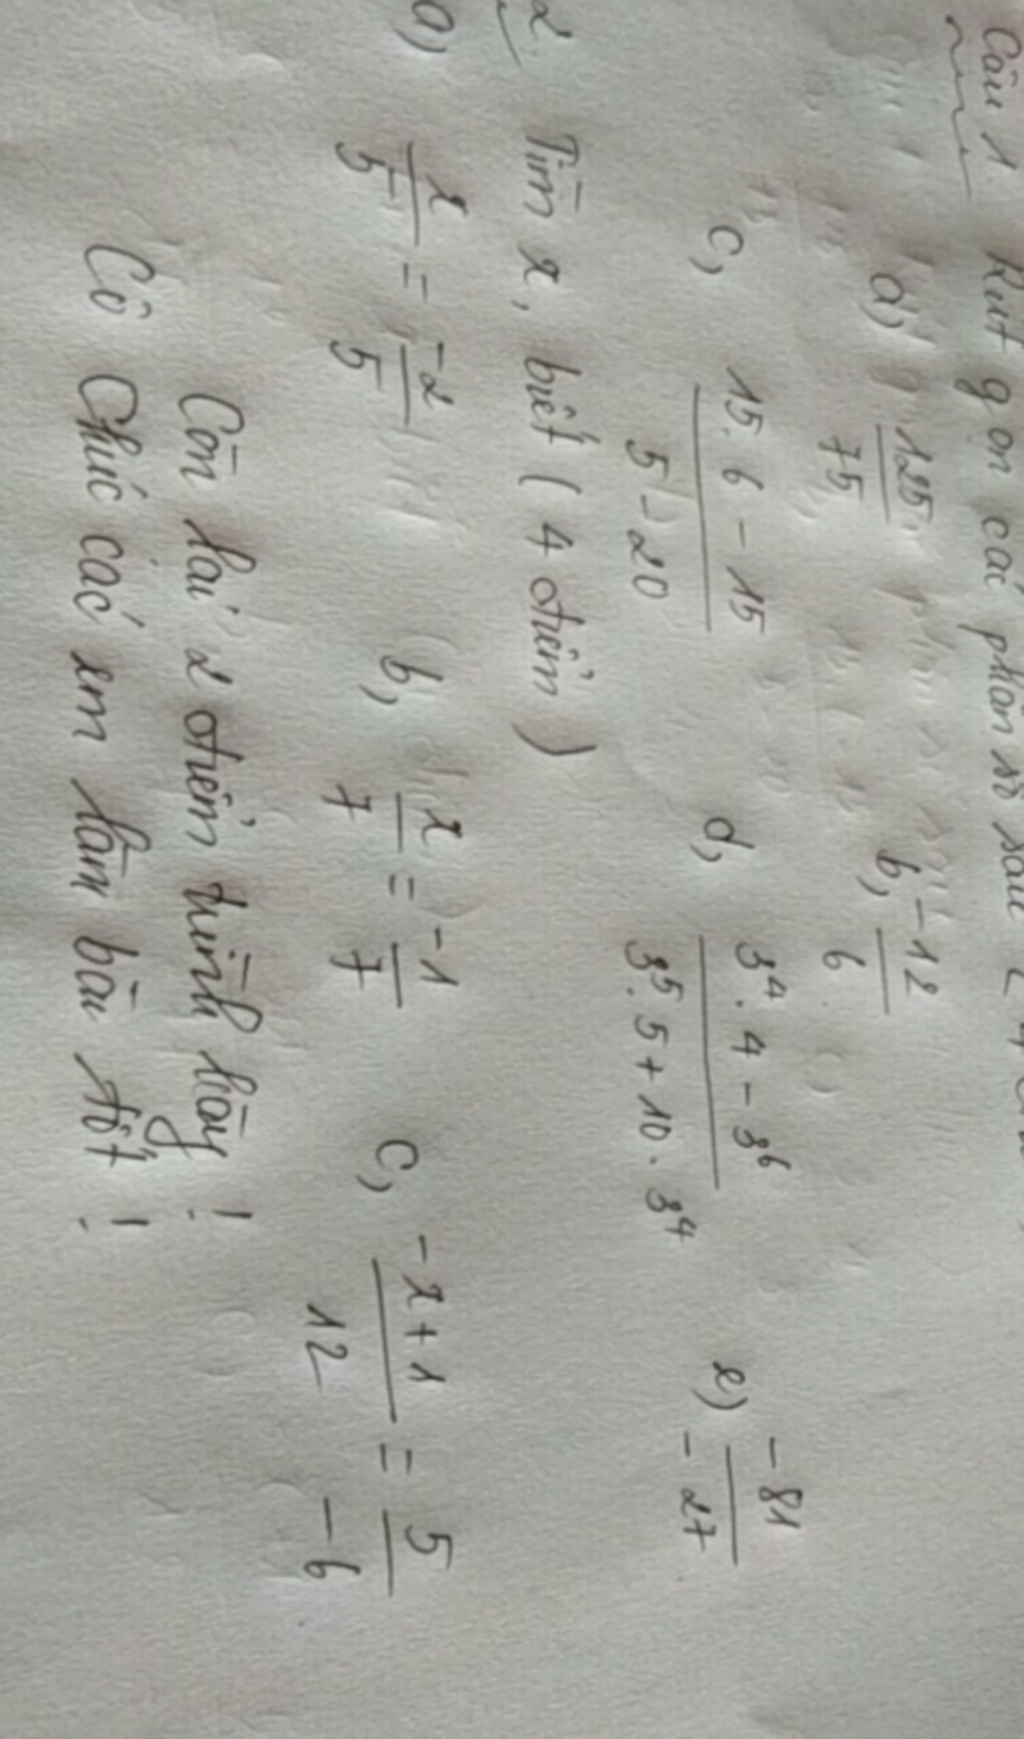 Câu 1. Rút gọn các phân số sau ( 4
a, 125/75 b, -12/6
c, (15.6 - 15)/(5 - 20) d, (3⁴.4 - 3⁶)/(3⁵.5 + 10.3⁴) e) -81/-27
2. Tìm x, biết ( 4 điểm )
a) x/5 = -2/5 b, x/7 = -1/7 c, (-x+1)/12 = 5/-6
Còn lại 2 điểm trình bày !
Cô Chúc các em làm bài tốt !